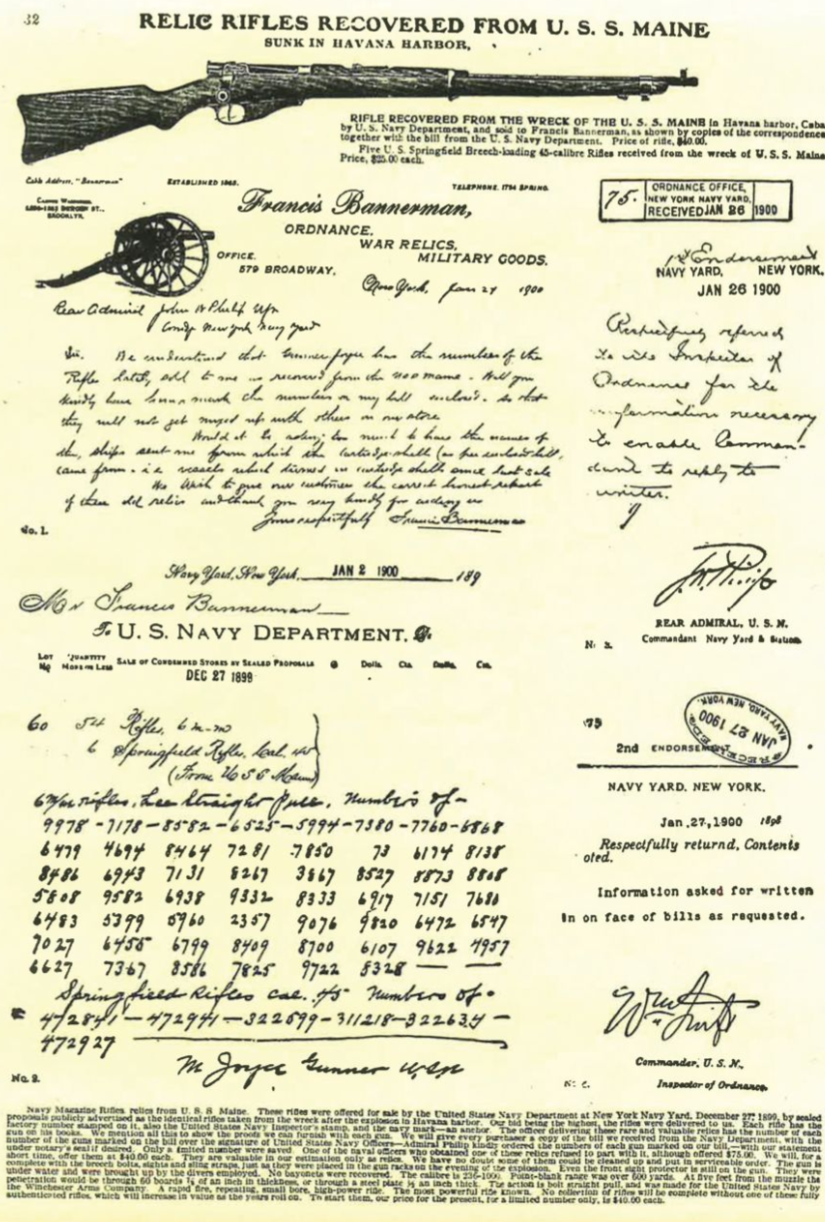 32
RELIC RIFLES RECOVERED FROM U. S. S. MAINE
SUNK IN HAVANA HARBOR,
RIFLE RECOVERED FROM THE WRECK OF THE U. S. S. MAINE in Havana harbor, Cuba
by U. S. Navy Department, and sold to Francis Bannerman, as shown by copies of the correspondence
together with the bill from the U. S. Navy Department. Price of rifle, $40.00.
Five U. S. Springfield Breech-loading 45-calibre Rifles received from the wreck of U. S. S. Maine
Price, $25.00 each.
Cable Address, "Bannerman"
ESTABLISHED 1865.
TELEPHONE, 1794 SPRING.
BROOKLYN.
Francis Bannerman,
ORDNANCE,
WAR RELICS,
MILITARY GOODS.
OFFICE.
579 BROADWAY.
New York, Jan 24 1900
Rear Admiral John W Philip USN
Comdg New York Navy Yard
Sir. Be understood that Gunner Joyce has the numbers of the
Rifles lately sold to me as recovered from the Maine. Will you
kindly have him mark the numbers on my bill enclosed. so that
they will not get mixed up with others in our store
Would it be asking too much to have the names of
the ships sent me from which the cartridge shells (as per enclosed bill,
came from. i.e vessels which turned in cartridge shells since last sale
We Wish to give our customers the correct honest report
of these old relics and thank you very kindly for aiding us
Yours respectfully Francis Bannerman
No. 1.
75.
ORDNANCE OFFICE,
NEW YORK NAVY YARD,
RECEIVED JAN 26 1900
1st Endorsement
NAVY YARD, NEW YORK.
JAN 26 1900
Respectfully referred
to the Inspector of
Ordnance for the
information necessary
to enable Comman-
dant to reply to
writer.
REAR ADMIRAL, U. S. N.
Commandant Navy Yard & Station
Navy Yard, New York, JAN 2 1900 189
Mr Francis Bannerman
To U. S. NAVY DEPARTMENT, Dr.
LOT No QUANTITY MORE OR LESS SALE OF CONDEMNED STORES BY SEALED PROPOSALS @ Dolls. Cts. Dolls. Cts.
DEC 27 1899
60 54 Rifles, 6 m-m
6 Springfield Rifles, Cal. 45
(From U S S Maine)
6 m/m Rifles, Lee Straight Pull, Numbers of-
9978 - 7178 - 8582 - 6525 - 5994 - 7380 - 7760 - 6868
6479 4694 8464 7281 7850 73 6174 8138
8486 6943 7131 8267 3867 8527 8873 8808
5808 9582 6938 9332 8333 6917 7151 7680
6483 5399 5960 2357 9076 9820 6472 6547
7027 6455 6799 8409 8700 6107 9622 4957
6627 7367 8586 7825 9722 8328 — —
Springfield Rifles cal. 45 Numbers of-
472841 - 472941 - 322599 - 311218 - 322634 -
472927
M Joyce Gunner USN
No. 2.
75
RECEIVED JAN 27 1900 NAVY YARD, NEW YORK.
2nd ENDORSEMENT
NAVY YARD, NEW YORK.
Jan. 27, 1900 1898
Respectfully returnd, Contents
oted.
Information asked for written
in on face of bills as requested.
Commander, U. S. N.,
Inspector of Ordnance.
Navy Magazine Rifles relics from U. S. S Maine. These rifles were offered for sale by the United States Navy Department at New York Navy Yard, December 27, 1899, by sealed
proposals publicly advertised as the identical rifles taken from the wreck after the explosion in Havana harbor. Our bid being the highest, the rifles were delivered to us. Each rifle has the
factory number stamped on it, also the United States Navy Inspector's stamp, and the navy mark—an anchor. The officer delivering these rare and valuable relics has the number of each
gun on his books. We mention all this to show the proofs we can furnish with each gun. We will give every purchaser a copy of the bill we received from the Navy Department, with the
number of the guns marked on the bill over the signature of United States Navy Officers—Admiral Philip kindly ordered the numbers of each gun marked on our bill,—with our statement
under notary's seal if desired. Only a limited number were saved. One of the naval officers who obtained one of these relics refused to part with it, although offered $75.00. We will, for a
short time, offer them at $40.00 each. They are valuable in our estimation only as relics. We have no doubt some of them could be cleaned up and put in serviceable order. The gun is
complete with the breech bolts, sights and sling straps, just as they were placed in the gun racks on the evening of the explosion. Even the front sight protector is still on the gun. They were
under water and were brought up by the divers employed. No bayonets were recovered. The calibre is 236-1000. Point-blank range was over 600 yards. At five feet from the muzzle the
penetration would be through 60 boards ⅞ of an inch in thickness, or through a steel plate ½ an inch thick. The action is bolt straight pull, and was made for the United States Navy by
the Winchester Arms Company. A rapid fire, repeating, small bore, high-power rifle. The most powerful rifle known. No collection of rifles will be complete without one of these fully
authenticated rifles, which will increase in value as the years roll on. To start them, our price for the present, for a limited number only, is $40.00 each.